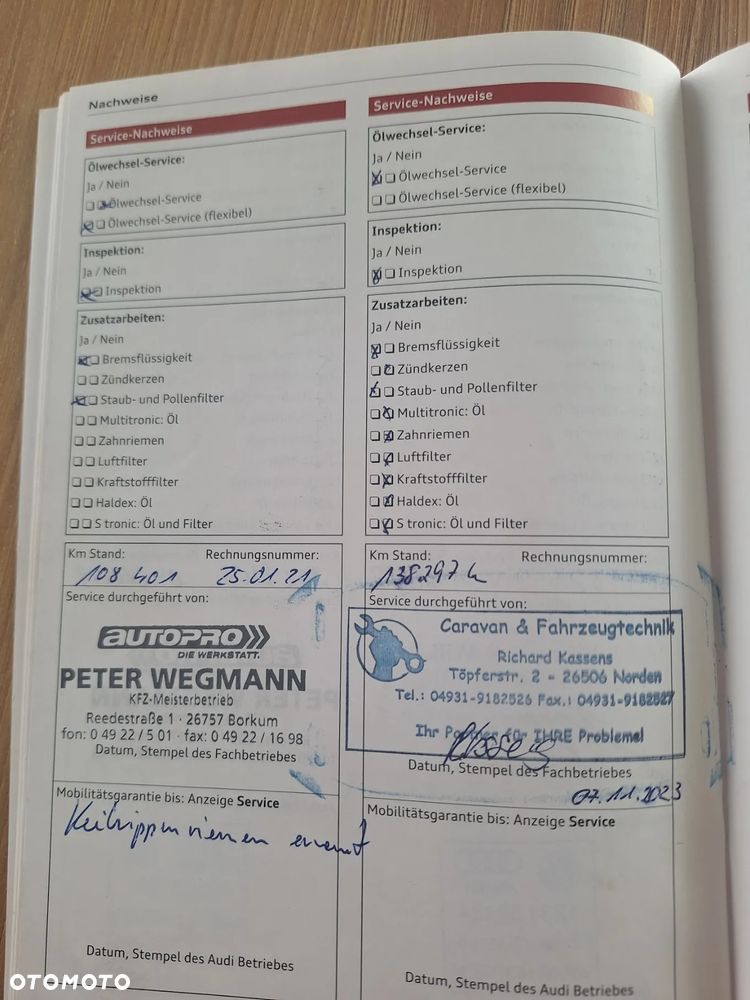 Nachweise
Service-Nachweise
Ölwechsel-Service:
Ja / Nein
Ölwechsel-Service
Ölwechsel-Service (flexibel)
Inspektion:
Ja / Nein
Inspektion
Zusatzarbeiten:
Ja / Nein
Bremsflüssigkeit
Zündkerzen
Staub- und Pollenfilter
Multitronic: Öl
Zahnriemen
Luftfilter
Kraftstofffilter
Haldex: Öl
S tronic: Öl und Filter
Km Stand: Rechnungsnummer:
108 401 25.01.21
Service durchgeführt von:
AUTOPRO
DIE WERKSTATT.
PETER WEGMANN
KFZ-Meisterbetrieb
Reedestraße 1 · 26757 Borkum
fon: 0 49 22 / 5 01 · fax: 0 49 22 / 16 98
Datum, Stempel des Fachbetriebes
Mobilitätsgarantie bis: Anzeige Service
Keilrippenriemen erneut
Datum, Stempel des Audi Betriebes
Service-Nachweise
Ölwechsel-Service:
Ja / Nein
Ölwechsel-Service
Ölwechsel-Service (flexibel)
Inspektion:
Ja / Nein
Inspektion
Zusatzarbeiten:
Ja / Nein
Bremsflüssigkeit
Zündkerzen
Staub- und Pollenfilter
Multitronic: Öl
Zahnriemen
Luftfilter
Kraftstofffilter
Haldex: Öl
S tronic: Öl und Filter
Km Stand: Rechnungsnummer:
138297
Service durchgeführt von:
Caravan & Fahrzeugtechnik
Richard Kassens
Töpferstr. 2 - 26506 Norden
Tel.: 04931-9182526 Fax.: 04931-9182527
Ihr Partner für IHRE Probleme!
Datum, Stempel des Fachbetriebes
07.11.2023
Mobilitätsgarantie bis: Anzeige Service
Datum, Stempel des Audi Betriebes
OTOMOTO